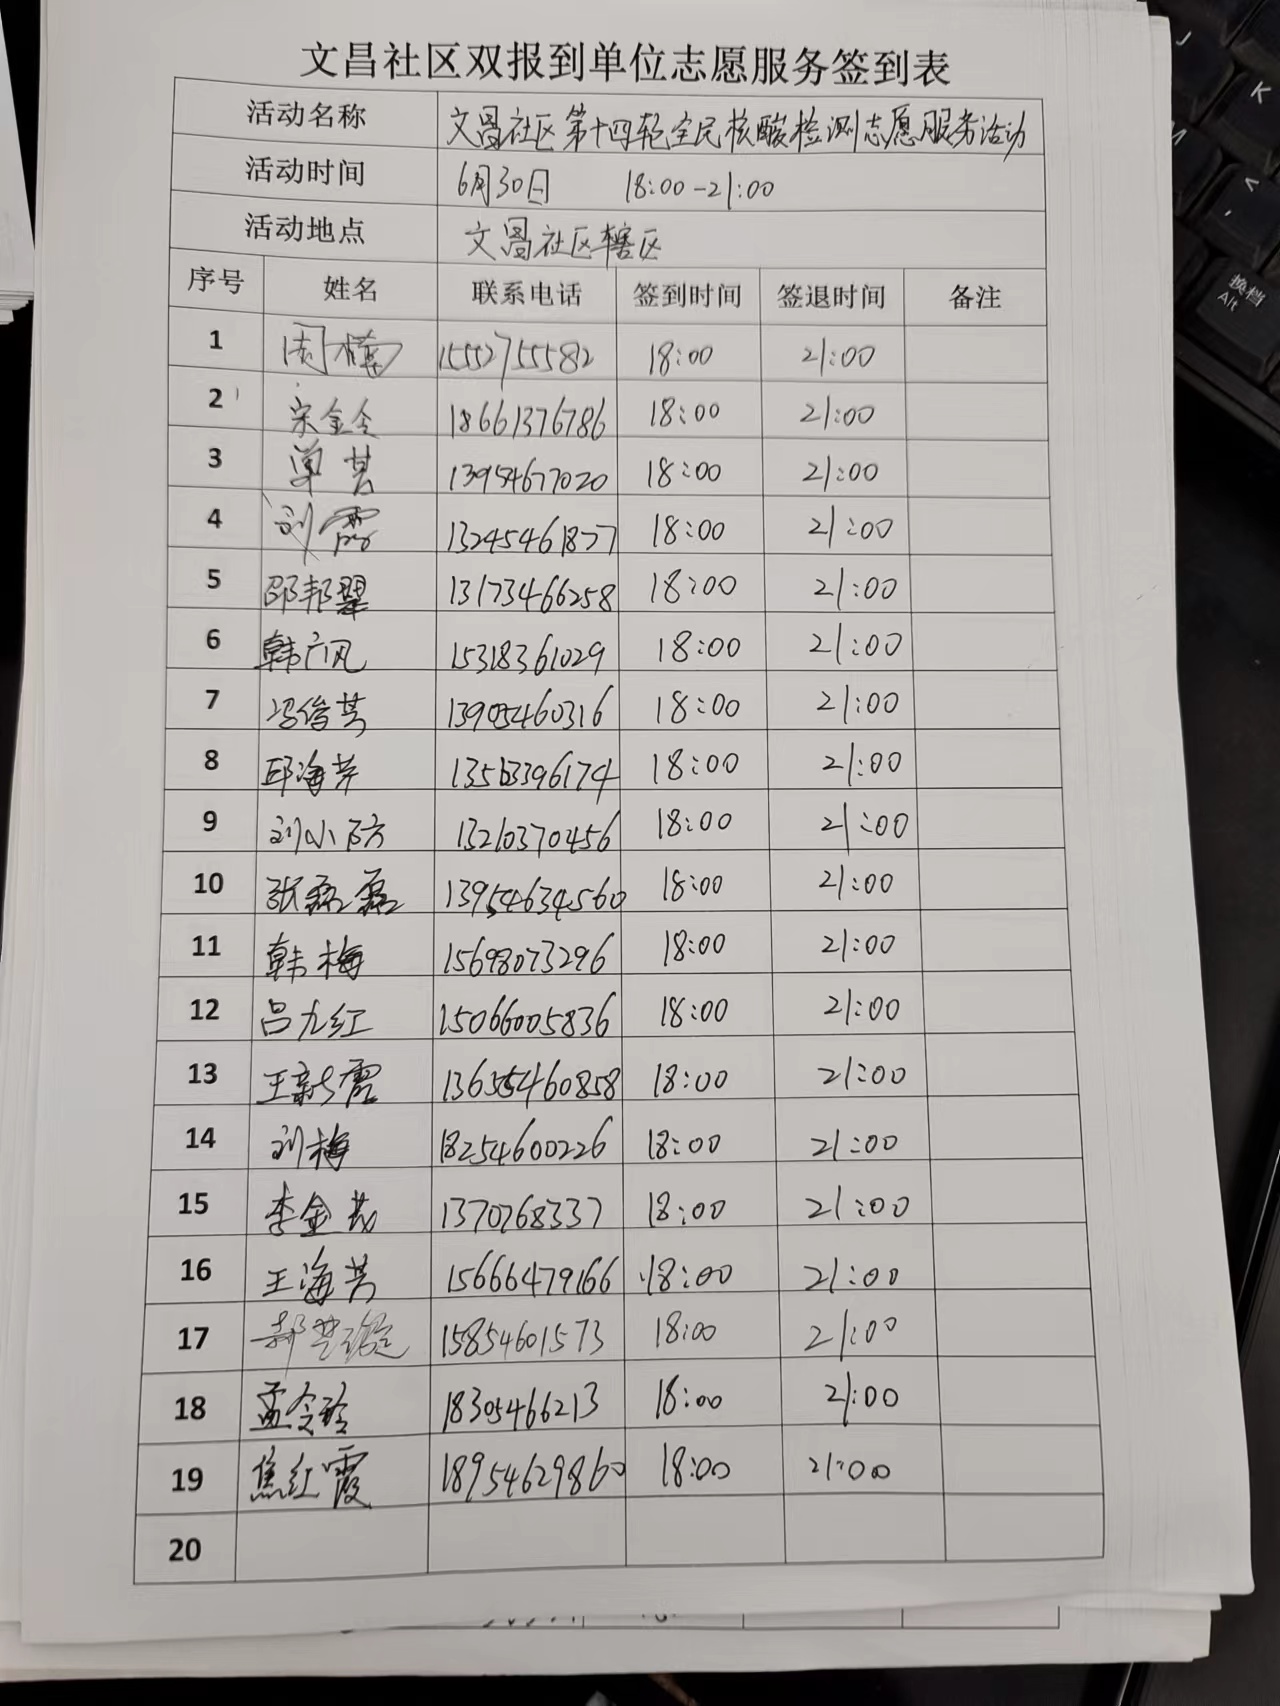 文昌社区双报到单位志愿服务签到表
活动名称 文昌社区第十四轮全民核酸检测志愿服务活动
活动时间 6月30日 18:00-21:00
活动地点 文昌社区辖区
序号 姓名 联系电话 签到时间 签退时间 备注
1 周 15527555582 18:00 21:00
2 宋金令 18661376786 18:00 21:00
3 单芸 13954677020 18:00 21:00
4 刘霞 13245461877 18:00 21:00
5 邵邦翠 13173466258 18:00 21:00
6 韩广风 15318361029 18:00 21:00
7 冯俊芳 13905460316 18:00 21:00
8 邱海芹 13563396174 18:00 21:00
9 刘小防 13210370456 18:00 21:00
10 张磊磊 13954634560 18:00 21:00
11 韩梅 15698073296 18:00 21:00
12 吕九红 15066005836 18:00 21:00
13 王新霞 13655460858 18:00 21:00
14 刘梅 18254600226 18:00 21:00
15 李金 1370768337 18:00 21:00
16 王海芳 15666479166 18:00 21:00
17 15854601573 18:00 21:00
18 孟令玲 18305466213 18:00 21:00
19 焦红霞 18954629860 18:00 21:00
20
J
K
M
换档
Alt